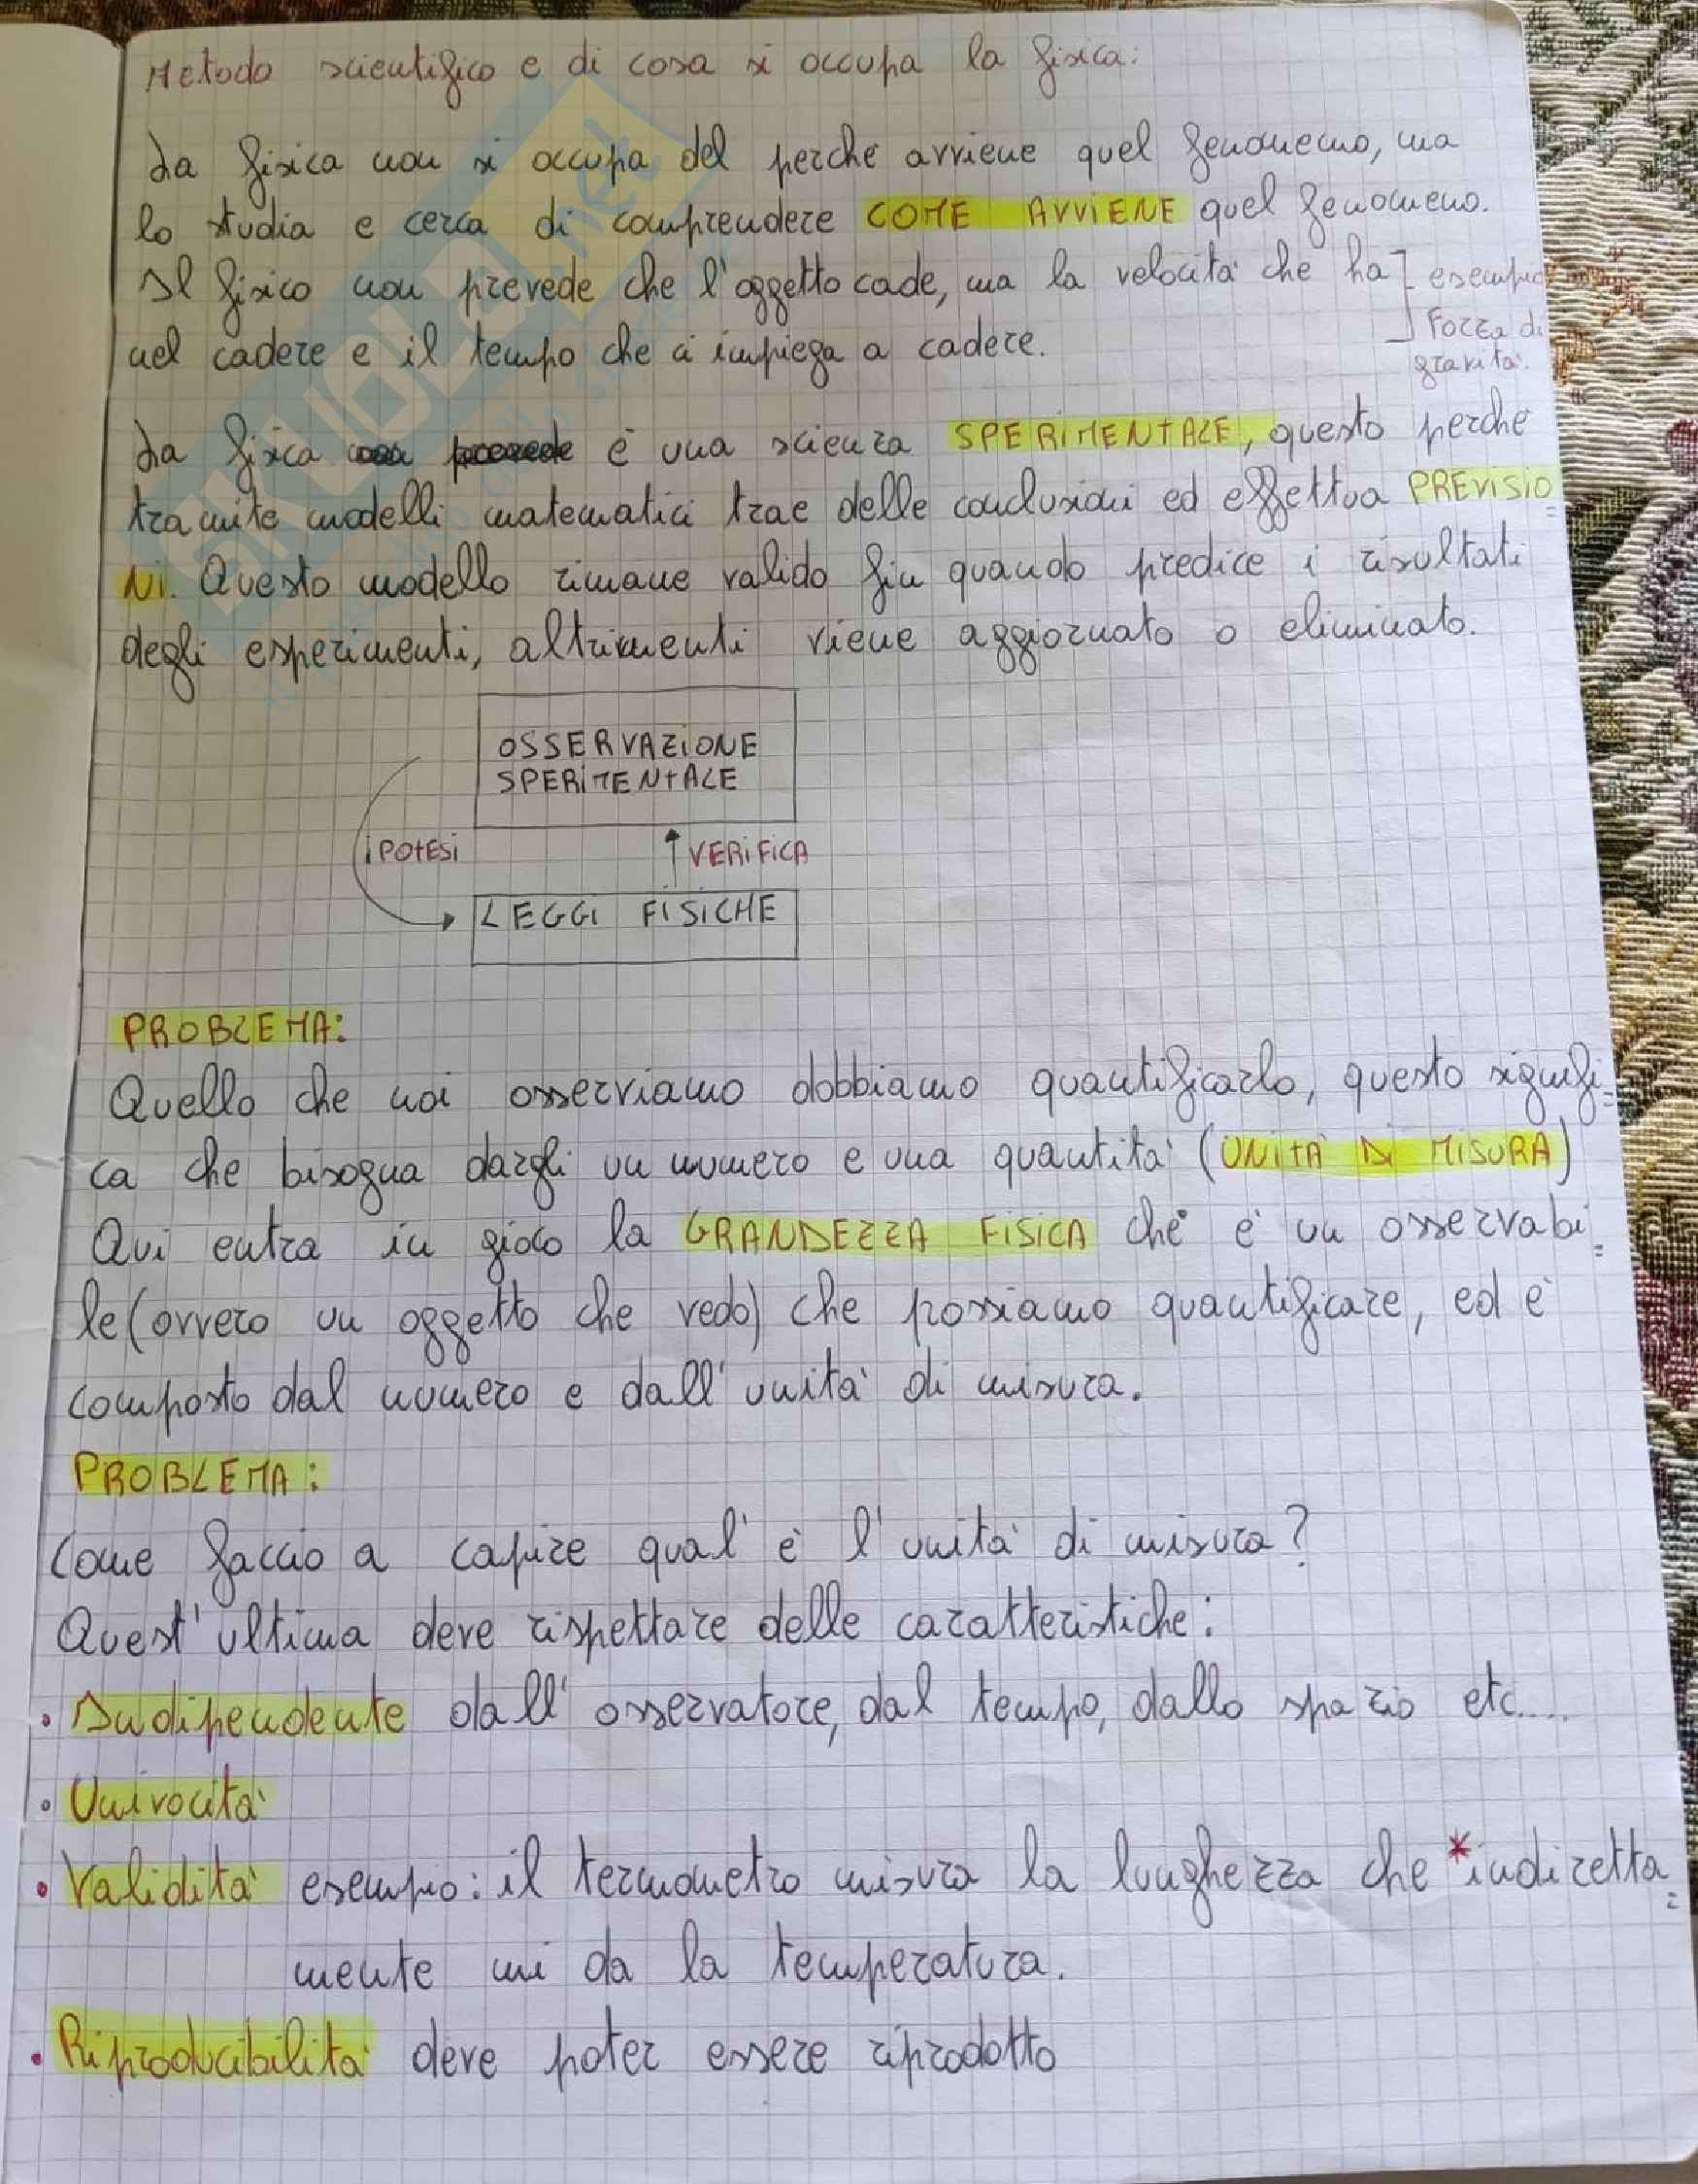 Metodo scientifico e di cosa si occupa la fisica:
La fisica non si occupa del perché avviene quel fenomeno, ma
lo studia e cerca di comprendere COME AVVIENE quel fenomeno.
Il fisico non prevede che l'oggetto cade, ma la velocità che ha
nel cadere e il tempo che ci impiega a cadere.
esempio
Forza di
gravità.
La fisica non prevede è una scienza SPERIMENTALE, questo perché
tramite modelli matematici trae delle conclusioni ed effettua PREVISIO
NI. Questo modello rimane valido fin quando predice i risultati
degli esperimenti, altrimenti viene aggiornato o eliminato.
OSSERVAZIONE
SPERIMENTALE
IPOTESI
VERIFICA
LEGGI FISICHE
PROBLEMA:
Quello che noi osserviamo dobbiamo quantificarlo, questo signifi=
ca che bisogna dargli un numero e una quantità (UNITÀ DI MISURA)
Qui entra in gioco la GRANDEZZA FISICA che è un osservabi=
le (ovvero un oggetto che vedo) che possiamo quantificare, ed è
composto dal numero e dall'unità di misura.
PROBLEMA:
Come faccio a capire qual'è l'unità di misura?
Quest'ultima deve rispettare delle caratteristiche:
• Indipendente dall'osservatore, dal tempo, dallo spazio etc....
• Univocità
• Validità esempio: il termometro misura la lunghezza che *indiretta=
mente mi da la temperatura.
• Riproducibilità deve poter essere riprodotto